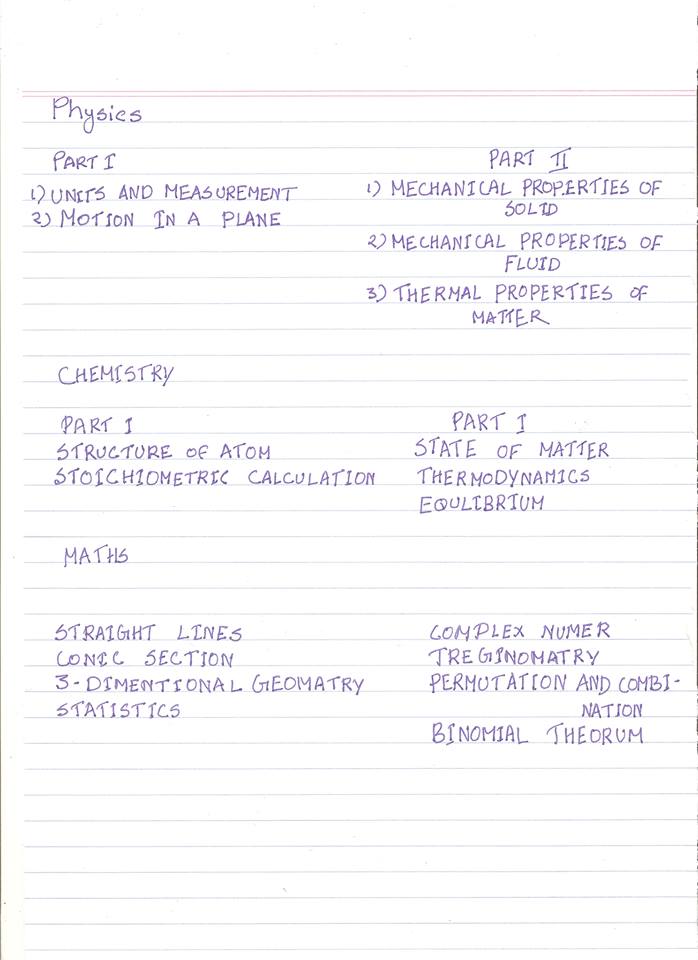 Physics
PART I
1) UNITS AND MEASUREMENT
2) MOTION IN A PLANE
PART II
1) MECHANICAL PROPERTIES OF
SOLID
2) MECHANICAL PROPERTIES OF
FLUID
3) THERMAL PROPERTIES OF
MATTER
CHEMISTRY
PART I
STRUCTURE OF ATOM
STOICHIOMETRIC CALCULATION
PART I
STATE OF MATTER
THERMODYNAMICS
EQULIBRIUM
MATHS
STRAIGHT LINES
CONIC SECTION
3-DIMENTIONAL GEOMATRY
STATISTICS
COMPLEX NUMER
TREGINOMATRY
PERMUTATION AND COMBI-
NATION
BINOMIAL THEORUM